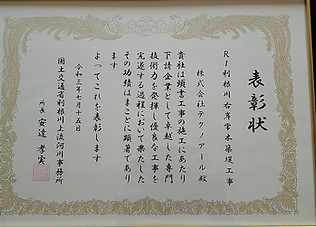 表彰状
R1利根川右岸常木築堤工事
株式会社テクノアール殿
貴社は頭書工事の施工にあたり
下請企業として卓越した専門
技術力を発揮し優良な工事を
完遂する過程において果たした
その功績はまことに顕著であり
ます
よってこれを表彰します
令和三年七月十五日
国土交通省利根川上流河川事務所
所長 安達孝実